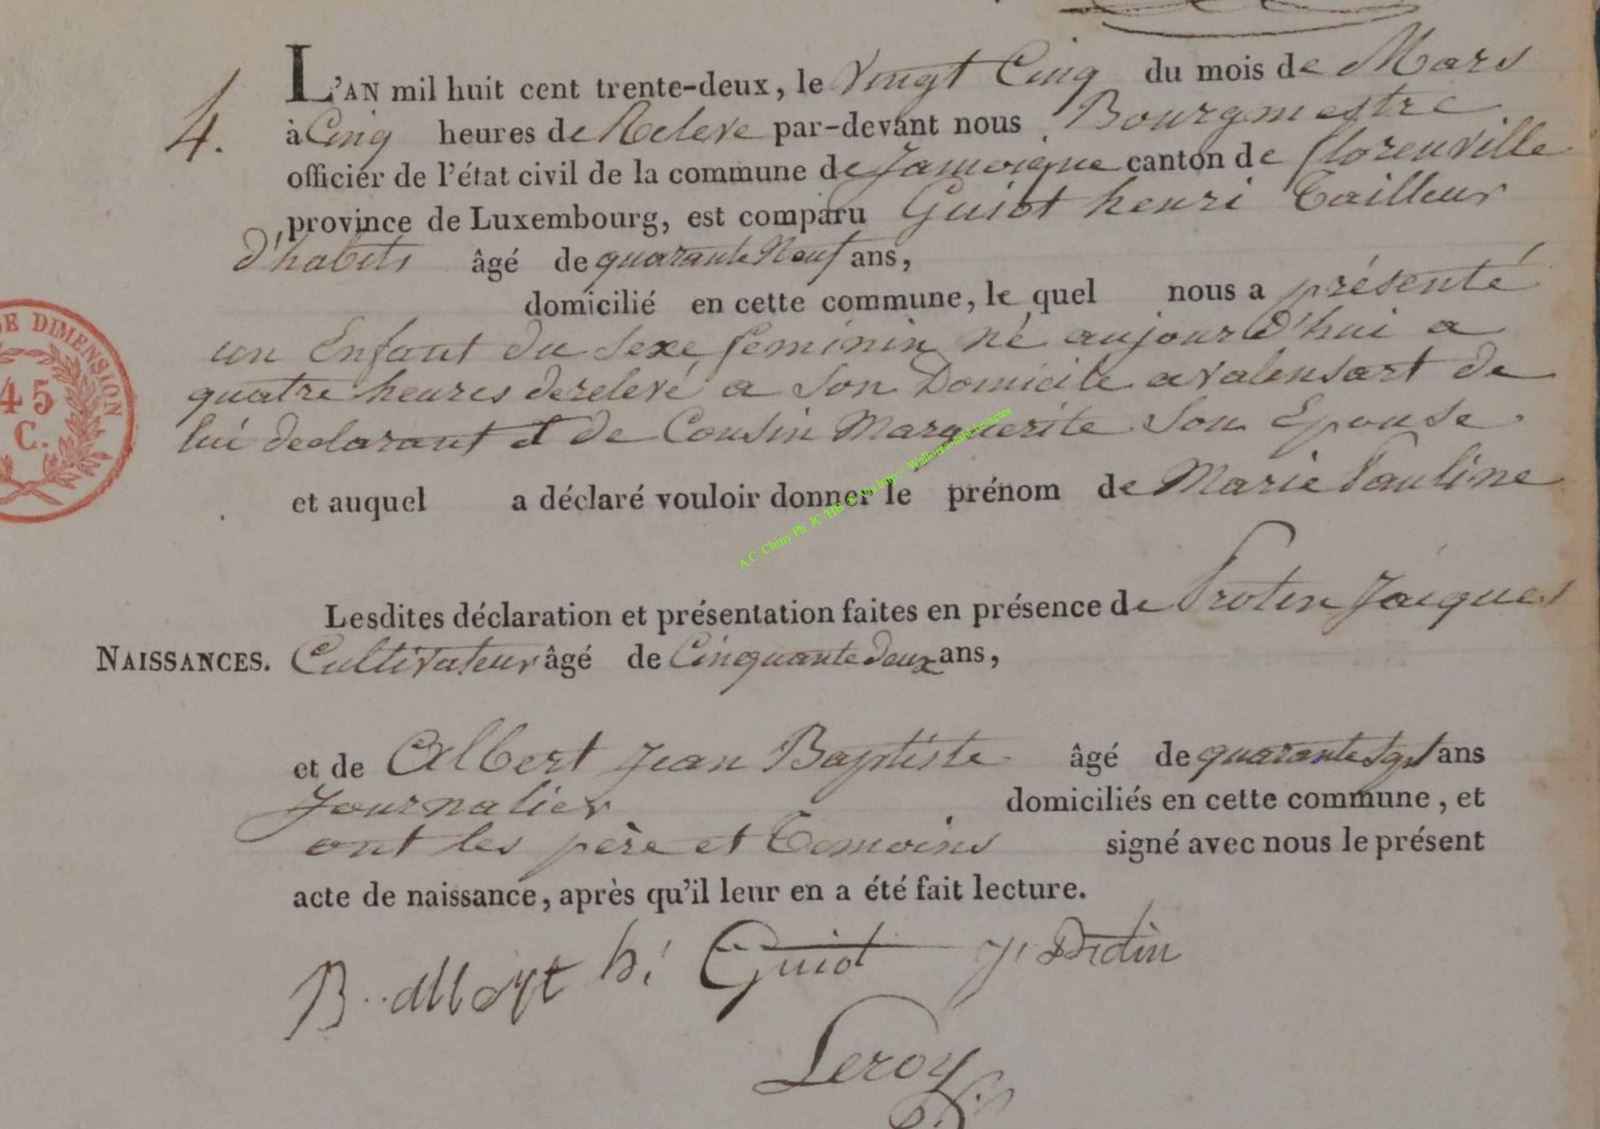 4.
L'AN mil huit cent trente-deux, le Vingt Cinq du mois de Mars
à Cinq heures de Releve par-devant nous Bourgmestre
officiér de l'état civil de la commune de Jamoigne canton de florenville
province de Luxembourg, est comparu Guiot henri Tailleur
d'habits âgé de quarante Neuf ans,
domicilié en cette commune, le quel nous a présenté
un Enfant du Sexe feminin né aujourd'hui a
quatre heures de relevé a Son Domicile a Valensart de
lui declarant et de Cousin Marguerite Son Epouse
et auquel a déclaré vouloir donner le prénom de Marie Pauline
Lesdites déclaration et présentation faites en présence de Protin Jacques
NAISSANCES. Cultivateur âgé de Cinquante deux ans,
et de Albert Jean Baptiste âgé de quarante Sept ans
Journalier domiciliés en cette commune, et
ont les père et Temoins signé avec nous le présent
acte de naissance, après qu'il leur en a été fait lecture.
B. albert h. Guiot J. Protin
Leroy
DE DIMENSION
45
C.
A.C. Chiny Ph. JC /HB